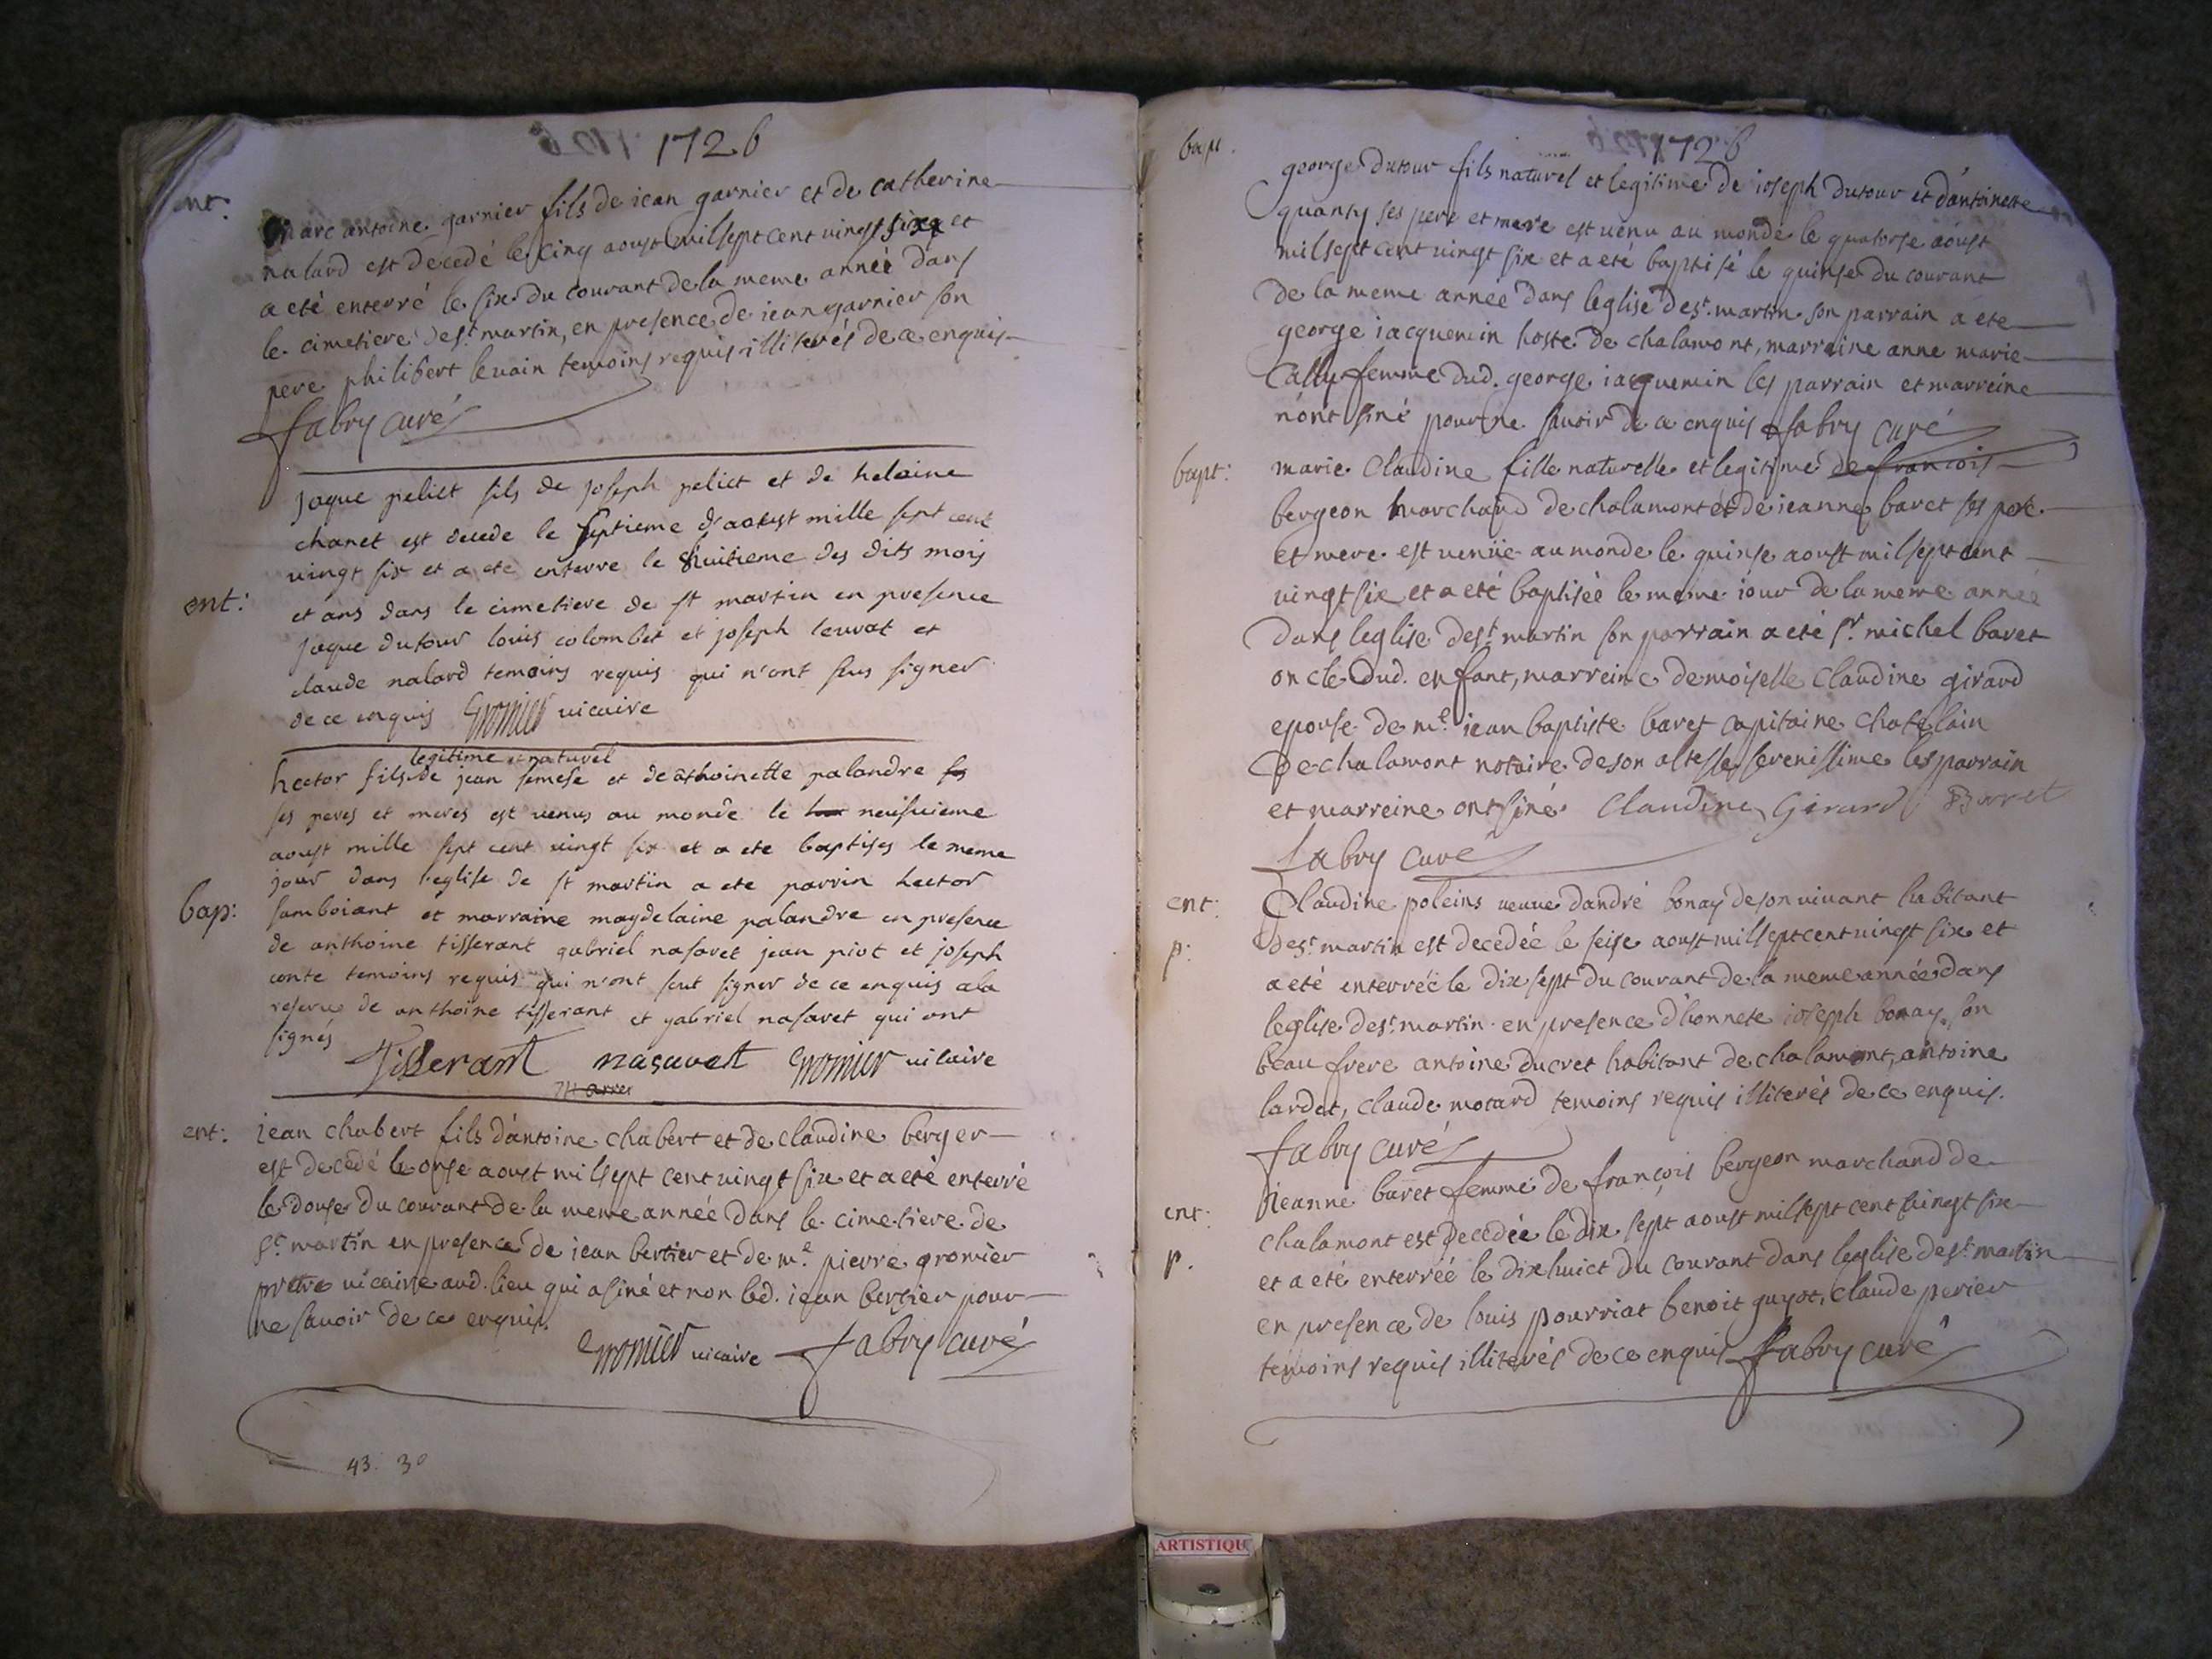 1726
ent:
marc antoine garnier fils de iean garnier et de catherine
nalard est decedé le cinq aoust mil sept cent vingt six et
a eté enterré le six du courant de la meme année dans
le cimetiere de st. martin, en presence de iean garnier son
pere philibert levain temoins requis illiterés de ce enquis
fabry curé
ent:
jaque peliet fils de joseph peliet et de helaine
chanet est decede le septieme d'aoust mille sept cent
vingt six et a ete enterre le huitieme des dits mois
et ans dans le cimetiere de st martin en presence
jaque dutour louis colombet et joseph leurat et
claude nalard temoins requis qui n'ont seus signer
de ce enquis Gromier vicaire
bap:
legitime et naturel
hector fils de jean semese et de athoinette palandre
ses peres et meres est venus au monde le neufvieme
aoust mille sept cent vingt six et a ete baptises le meme
jour dans l'eglise de st martin a ete parrin hector
samboiant et marraine magdelaine palandre en presence
de anthoine tisserant gabriel nasaret jean piot et joseph
conte temoins requis qui n'ont seut signer de ce enquis a la
reserve de anthoine tisserant et gabriel nasaret qui ont
signés
Tisserant nasavett Gromier vicaire
ent:
iean chabert fils d'antoine chabert et de claudine berger
est decedé le onse aoust mil sept cent vingt six et a eté enterré
le douse du courant de la meme année dans le cimetiere de
st. martin en presence de iean bertier et de me. pierre gromier
pretre vicaire aud. lieu qui a siné et non led. iean bertier pour
ne savoir de ce enquis.
Gromier vicaire fabry curé
43. 30
1726
bapt.
george dutour fils naturel et legitime de ioseph dutour et d'antoinette
quanty ses pere et mere est venu au monde le quatorse aoust
mil sept cent vingt six et a eté baptisé le quinse du courant
de la meme année dans leglise de st. martin son parrain a eté
george iacquemin hoste de chalamont, marraine anne marie
Cally femme dud. george iacquemin les parrain et marreine
n'ont siné pour ne savoir de ce enquis fabry curé
bapt:
marie claudine fille naturelle et legitime de francois
bergeon marchand de chalamont et de ieanne baret ses pere
et mere est venüe au monde le quinse aoust mil sept cent
vingt six et a eté baptisée le meme iour de la meme année
dans leglise de st. martin son parrain a eté sr. michel baret
oncle dud. enfant, marreine demoiselle claudine girard
epouse de me. iean baptiste baret capitaine chatelain
de chalamont notaire de son altesse serenissime les parrain
et marreine ont siné. Claudine Girard Barret
fabry curé
ent:
p:
Claudine poleins veuve dandré bonay de son vivant habitant
de st. martin est decedée le seise aoust mil sept cent vingt six et
a eté enterrée le dix sept du courant de la meme année dans
leglise de st. martin en presence d'honnete ioseph bonay, son
beau frere antoine ducret habitant de chalamont, antoine
lardet, claude motard temoins requis illiterés de ce enquis.
fabry curé
ent:
p.
ieanne baret femme de françois bergeon marchand de
chalamont est decedée le dix sept aoust mil sept cent vingt six
et a eté enterrée le dix huict du courant dans leglise de st. martin
en presence de louis pourriat benoit guyot, claude perier
temoins requis illiterés de ce enquis fabry curé
ARTISTIQU